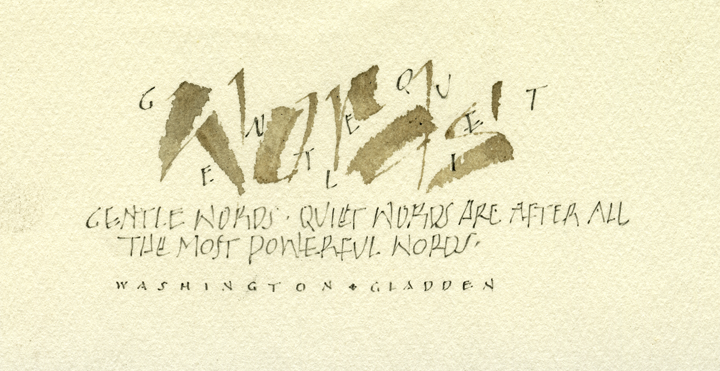 WORDS
GENTLE QUIET
GENTLE WORDS · QUIET WORDS ARE AFTER ALL
THE MOST POWERFUL WORDS.
WASHINGTON · GLADDEN